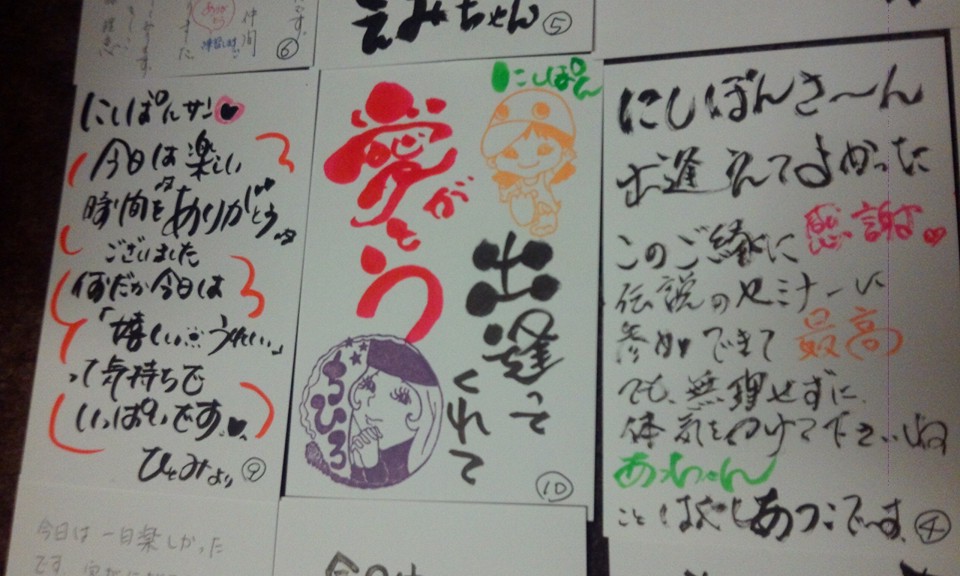 えみちゃん
⑤
⑥
仲間
にしぱんサン
今日は楽しい
時間をありがとう
ございました
何だか今日は
「嬉しい…うれしい」
って気持ちで
いっぱいです
ひとみより
⑨
にしぱん
出逢って
くれて
愛が
とう
ちひろ
⑩
にしぽんさ〜ん
出逢えてよかった
感謝
このご縁に
伝説のセミナーに
参加できて最高
でも、無理せずに
体気をつけて下さいね
あっちゃん
こと はやしあつこです。
④
今日は一日楽しかった
です。